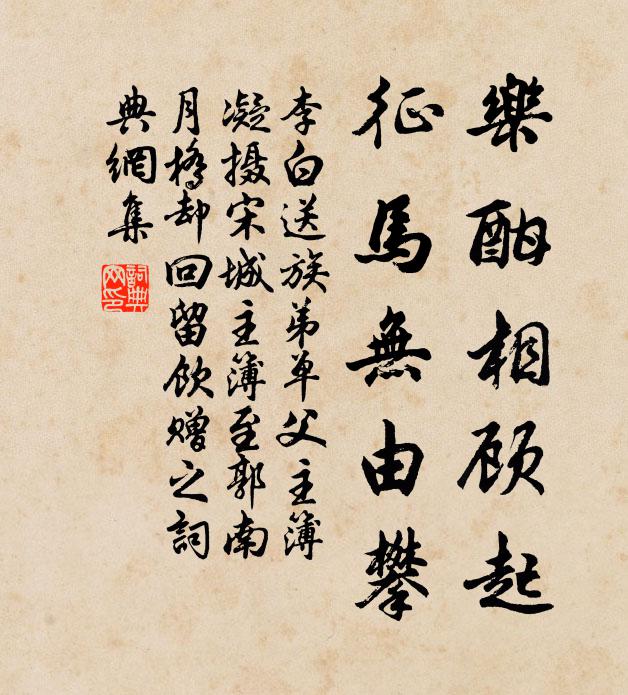 樂酣相顧起
征馬無由攀
李白送族弟单父主簿
凝摄宋城主簿至郭南
月橋却回留飲赠之詞
典網集
詞典網印